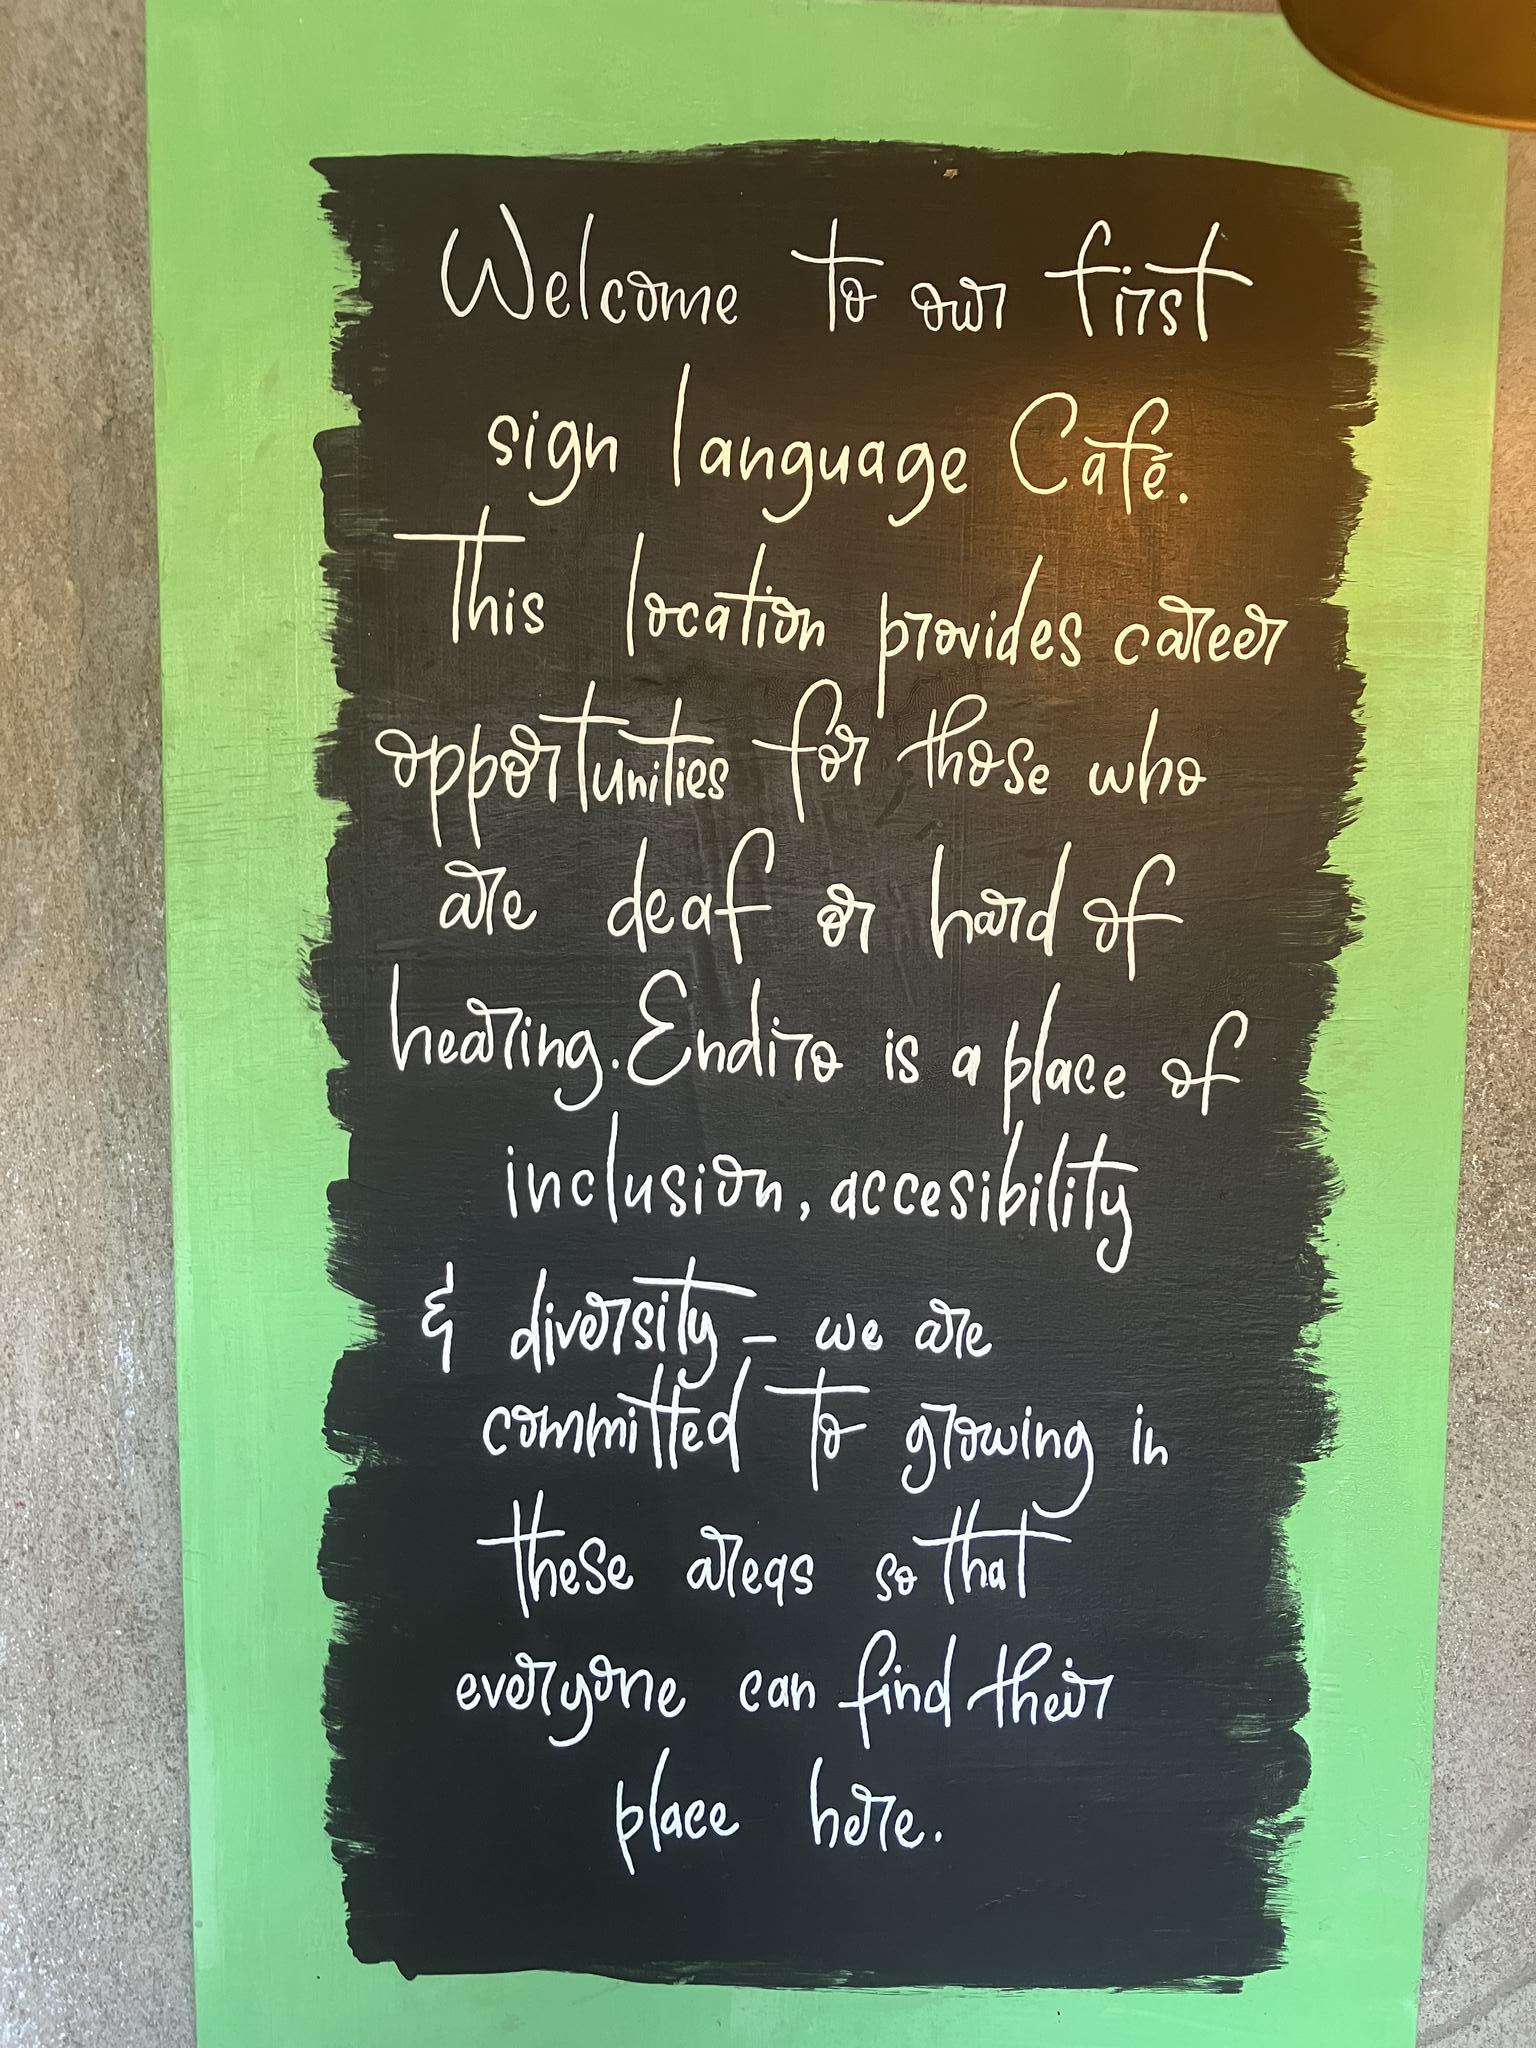 Welcome to our first
sign language Café.
This location provides career
opportunities for those who
are deaf or hard of
hearing. Endiro is a place of
inclusion, accesibility
& diversity – we are
committed to growing in
these areas so that
everyone can find their
place here.